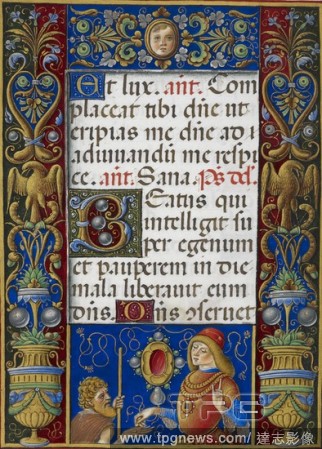 Et lux. ant. Com
placeat tibi dñe ut
eripias me dñe ad
adiuuandū me respi
ce. ant. Sana. Ps. ds.
BEatus qui
intelligit su
per egenum
et pauperem in die
mala liberauit eum
dñs. Dñs ɔseruet
TPG
www.tpgnews.com/達志影像